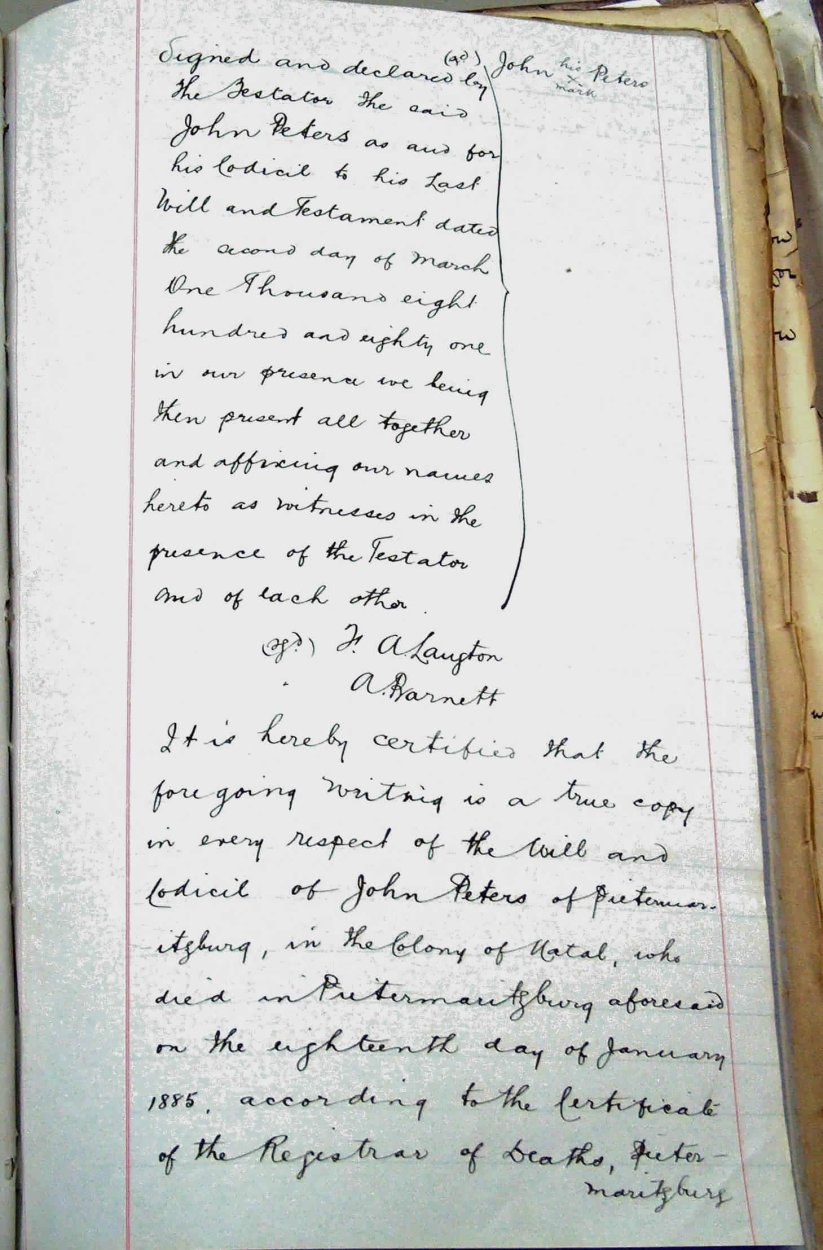 Signed and declared by
the Testator the said
John Peters as and for
his Codicil to his Last
Will and Testament dated
the second day of March
One Thousand eight
hundred and eighty one
in our presence we being
then present all together
and affixing our names
hereto as witnesses in the
presence of the Testator
and of each other.
(sgd) John his Peters
x
mark
(sgd.) F. A. Laugton
" A. Barnett
It is hereby certified that the
foregoing Writing is a true copy
in every respect of the Will and
Codicil of John Peters of Pietermar-
itzburg, in the Colony of Natal, who
died in Pietermaritzburg aforesaid
on the eighteenth day of January
1885, according to the Certificate
of the Registrar of Deaths, Pieter-
maritzburg